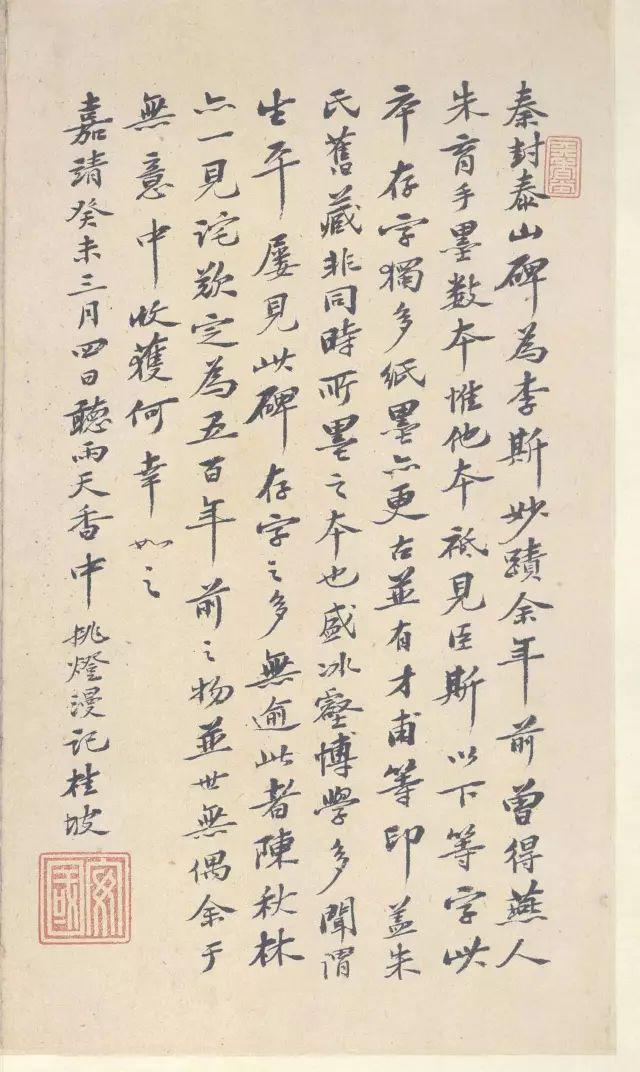 秦封泰山碑為李斯妙蹟余年前曾得燕人
朱育手墨数本惟他本袛見臣斯以下等字此
本存字獨多紙墨亦更古並有才甫等印蓋朱
氏舊藏非同時所墨之本也盛冰壑博學多聞謂
生平屡見此碑存字之多無逾此者陳秋林
亦一見詫歎定為五百年前之物並世無偶余于
無意中收獲何幸如之
嘉靖癸未三月四日聽雨天香中挑燈漫記桂坡
安國